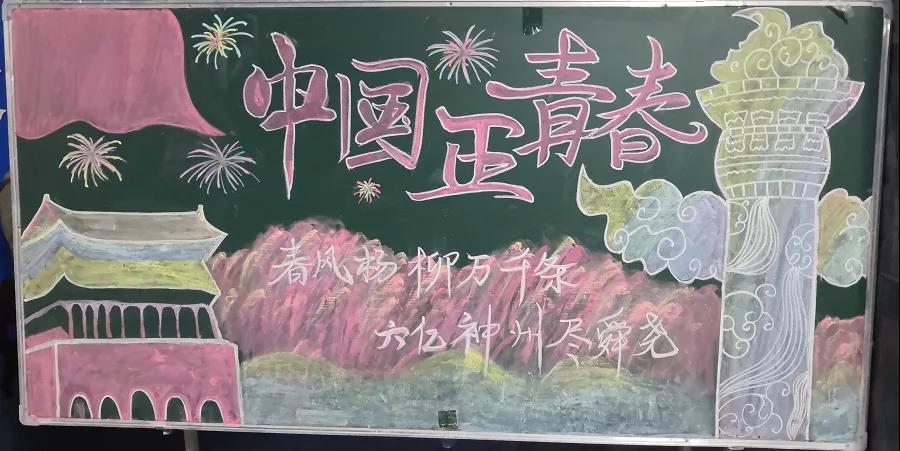 中国正青春
春风杨柳万千条
六亿神州尽舜尧